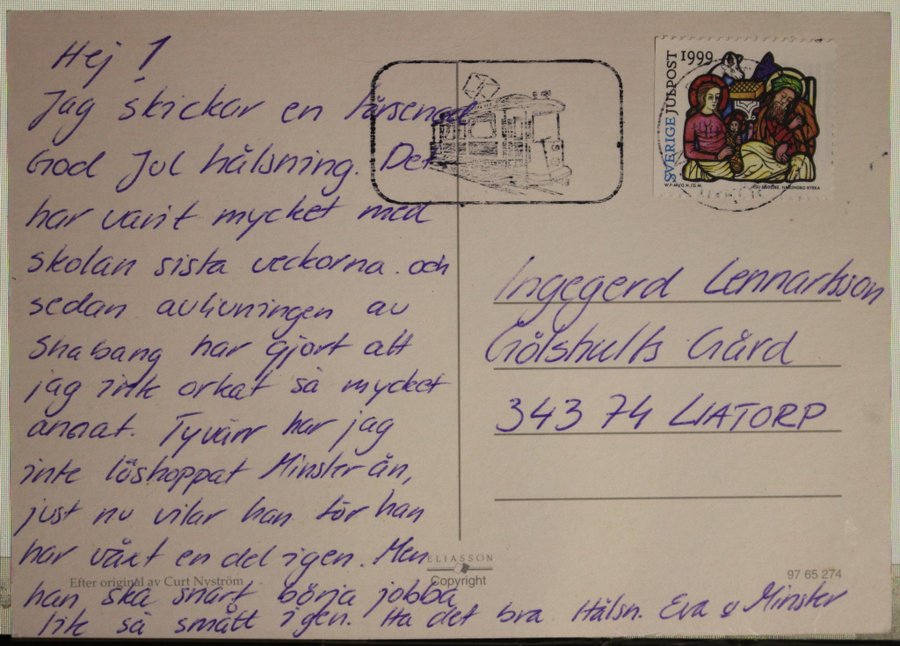 Hej!
Jag skickar en försenad
God Jul hälsning. Det
har varit mycket med
skolan sista veckorna och
sedan avlivningen av
Shabang har gjort att
jag inte orkat så mycket
annat. Tyvärr har jag
inte löshoppat Minster än,
just nu vilar han för han
har växt en del igen. Men
han ska snart börja jobba
lite så smått igen. Ha det bra. Hälsn. Eva & Minster
SVERIGE JULPOST 1999
Ingegerd Lennartsson
Gölshults Gård
343 74 LIATORP
ELIASSON
Efter original av Curt Nyström
Copyright
97 65 274